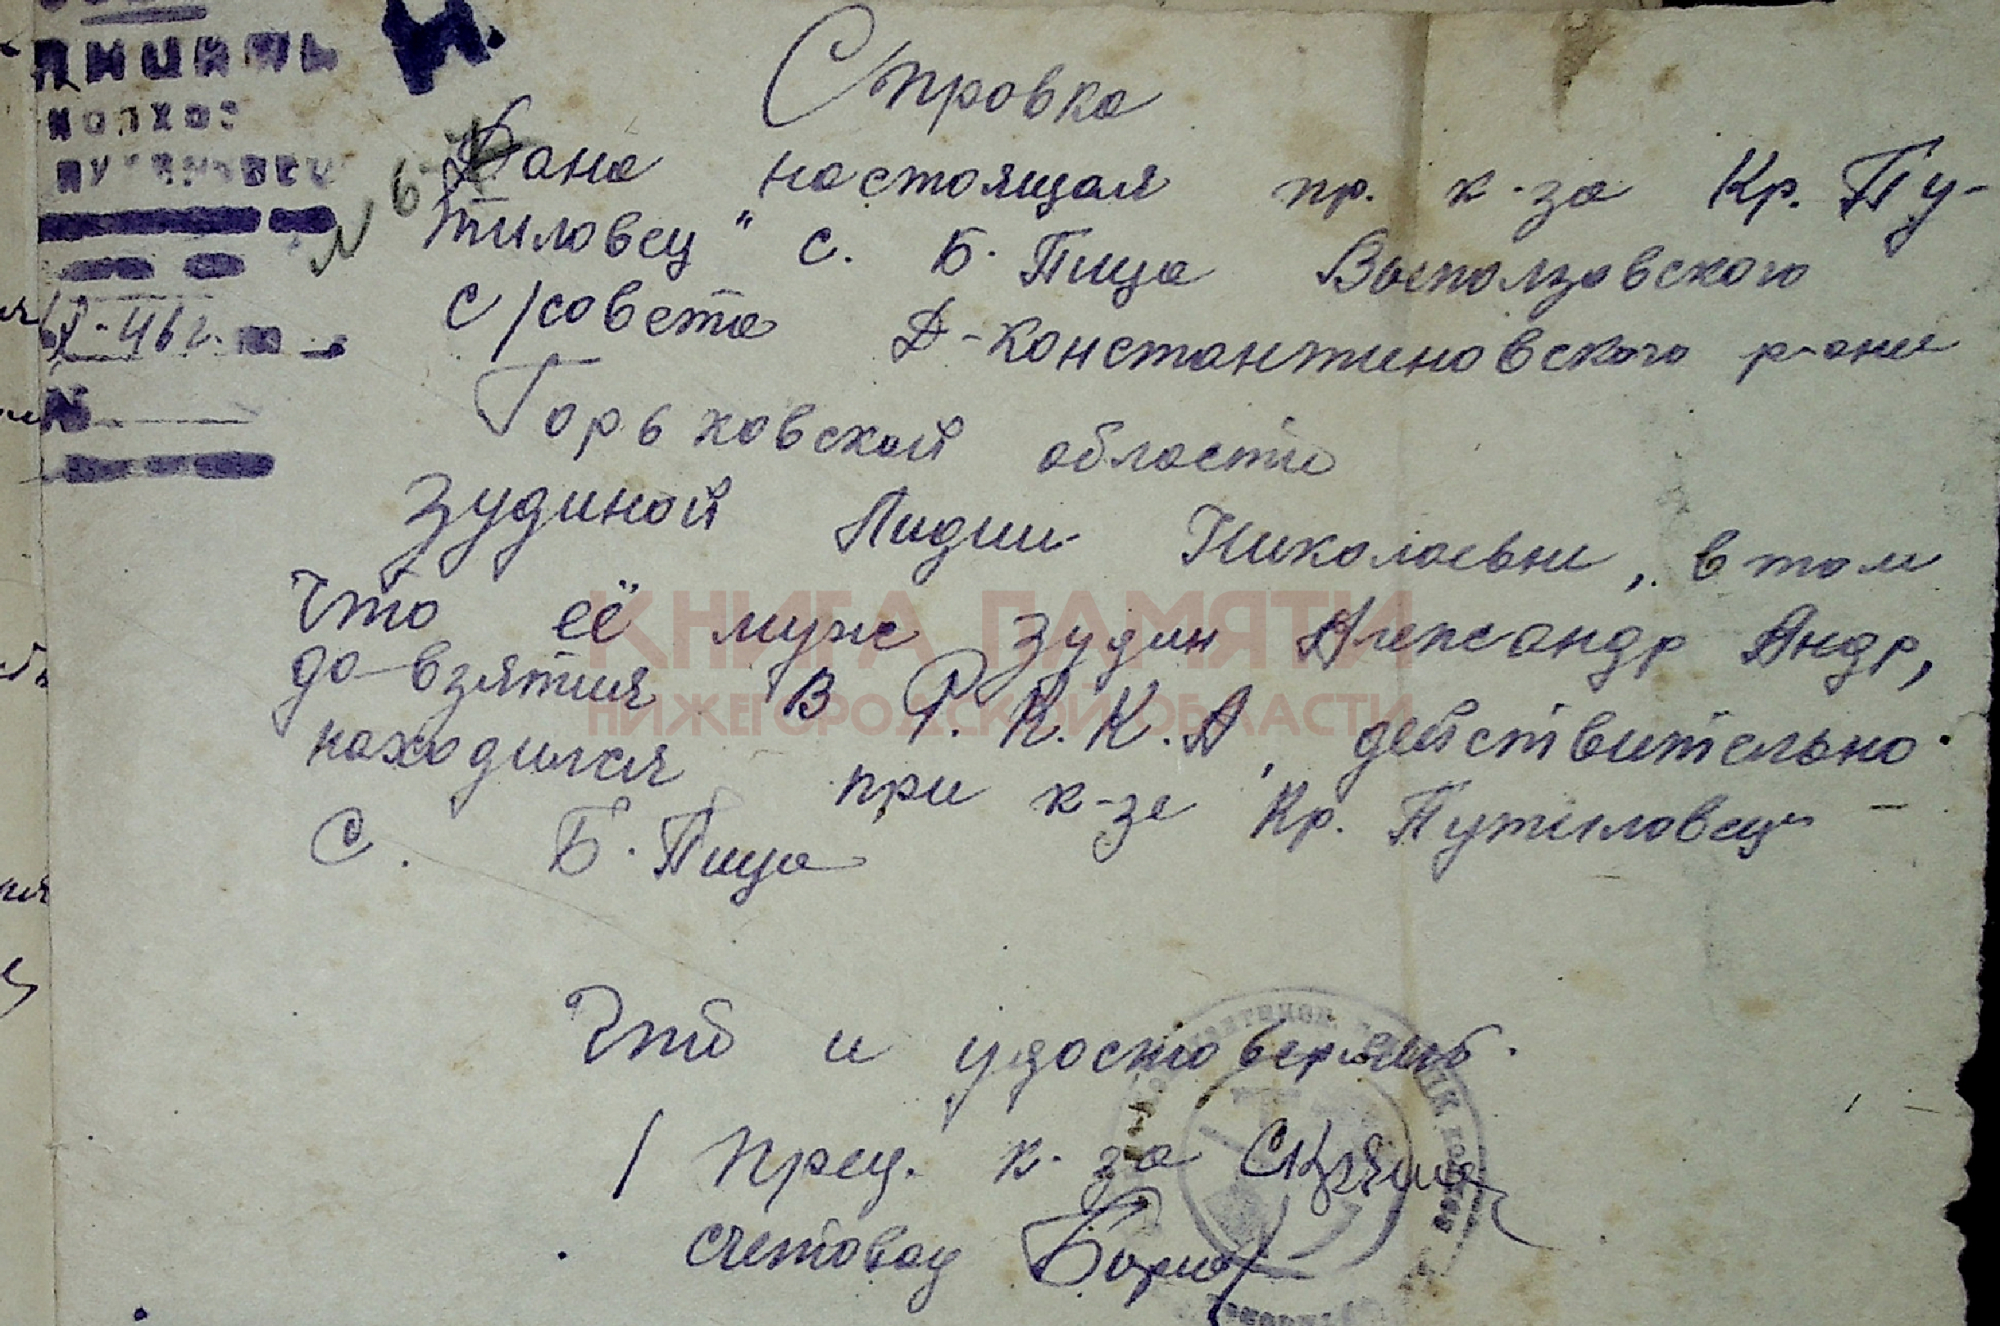 колхоз
N 6
-46 г.
N
Справка
Дана настоящая пр. к-за Кр. Пу-
тиловец" с. Б. Пица Выползовского
с/совета Д-Константиновского р-она
Горьковской области
Зудиной Лидии Николаевне, в том
что её муж Зудин Александр Андр,
до взятия В Р.К.К.А, действительно
находился при к-зе Кр. Путиловец
С. Б. Пица
Что и удостоверяет.
Пред. к-за
счетовод
КНИГА ПАМЯТИ
НИЖЕГОРОДСКОЙ ОБЛАСТИ